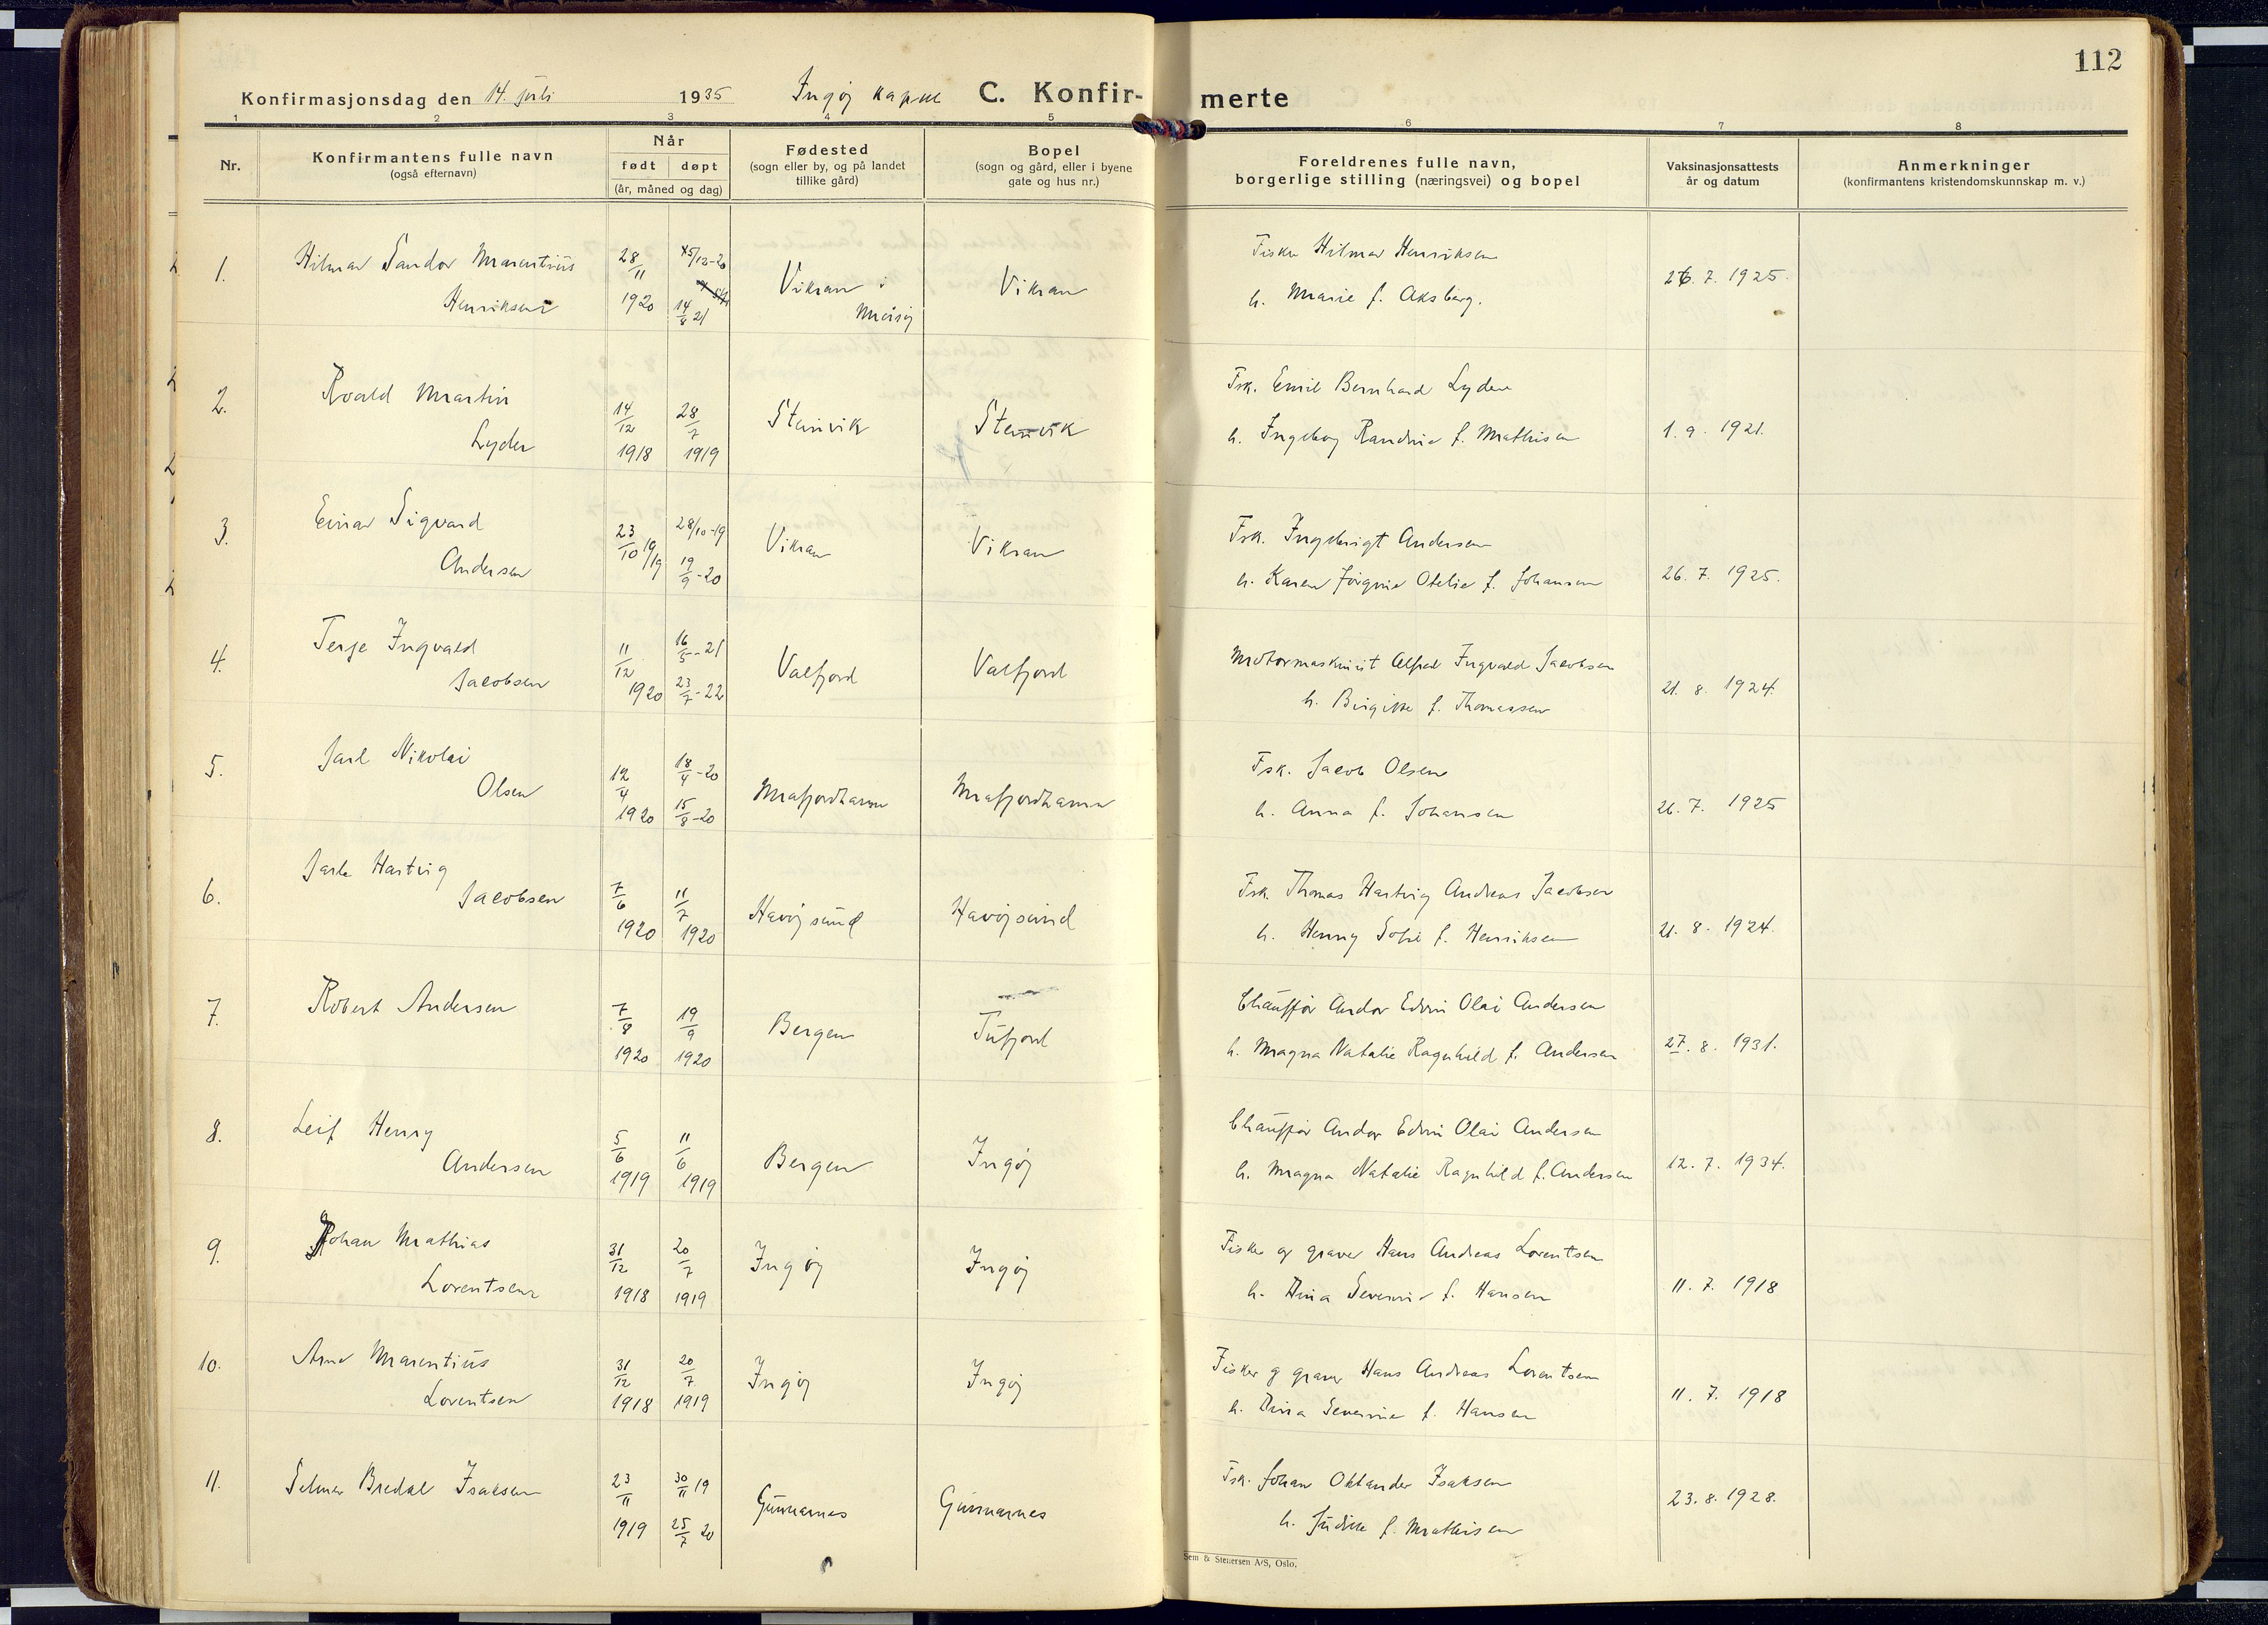 112
Konfirmasjonsdag den 14. juli 1935 Ingøy kapell C. Konfirmerte
1 2 3 4 5 6 7 8
Nr.
Konfirmantens fulle navn
(også efternavn)
Når
født døpt
(år, måned og dag)
Fødested
(sogn eller by, og på landet
tillike gård)
Bopel
(sogn og gård, eller i byene
gate og hus nr.)
Foreldrenes fulle navn,
borgerlige stilling (næringsvei) og bopel
Vaksinasjonsattests
år og datum
Anmerkninger
(konfirmantens kristendomskunnskap m. v.)
1. Hilmar Sandor Marentius 28/11 /12-20 Vikran i Vikran Fisker Hilmar Henriksen 26. 7. 1925.
Henriksen 1920 14/8 21 Måsøy h. Marie f. Aksberg.
2. Roald Martin 14/12 28/7 Steinvik Steinvik Fsk. Emil Bernhard Lyder
Lyder 1918 1919 h. Ingeborg Randine f. Mathisen 1. 9. 1921.
3. Einar Sigvard 23/10 19/19 28/10-19 Vikran Vikran Fsk. Ingebrigt Andersen
Andersen 19/9-20 h. Karen Jørgine Otelie f. Johansen 26. 7. 1925.
4. Terje Ingvald 11/12 16/5-21 Valfjord Valfjord Motormaskinist Alfred Ingvald Jacobsen
Jacobsen 1920 23/7-22 h. Birgitte f. Thomassen 21. 8. 1924.
5. Jarl Nikolai 12/4 18/4-20 Mafjordhavn Mafjordhavn Fsk. Jacob Olsen
Olsen 1920 15/8-20 h. Anna f. Johansen 26. 7. 1925
6. Jarle Hartvig 7/6 11/7 Havøysund Havøysund Fsk. Thomas Hartvig Andreas Jacobsen
Jacobsen 1920 1920 h. Henny Sofie f. Henriksen 21. 8. 1924.
7. Robert Andersen 7/8 19/9 Bergen Tufjord Chauffør Andor Edvin Olai Andersen
1920 1920 h. Magna Natalie Ragnhild f. Andersen 27. 8. 1931.
8. Leif Henry 5/6 11/6 Bergen Ingøy Chauffør Andor Edvin Olai Andersen
Andersen 1919 1919 h. Magna Natalie Ragnhild f. Andersen 12. 7. 1934.
9. Johan Mathias 31/12 20/7 Ingøy Ingøy Fisker og graver Hans Andreas Lorentsen
Lorentsen 1918 1919 h. Dina Severine f. Hansen 11. 7. 1918
10. Arne Marentius 31/12 20/7 Ingøy Ingøy Fisker og graver Hans Andreas Lorentsen
Lorentsen 1918 1919 h. Dina Severine f. Hansen 11. 7. 1918
11. Selmer Bredal Isaksen 23/11 30/11 19 Gunnarnes Gunnarnes Fsk. Johan Oktander Isaksen 23. 8. 1928.
1919 25/7 20 h. Judite f. Mathisen
Sem & Stenersen A/S, Oslo.